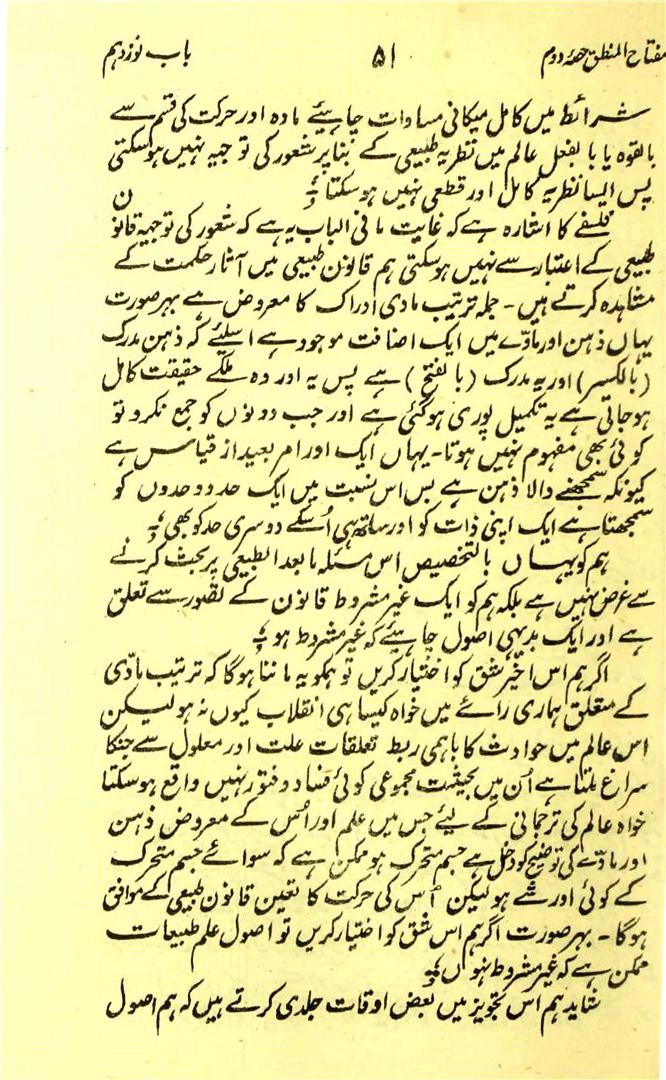 مفتاح المنطق حصۂ دوم ۵۱ باب نوزدہم
شرائط میں کامل میکانی مساوات چاہیئے مادہ اور حرکت کی قسم سے
بالقوہ یا بالفعل عالم میں نظریہ طبیعی کے بنا پر شعور کی توجیہ نہیں ہوسکتی
پس ایسا نظریہ کامل اور قطعی نہیں ہوسکتا ؛
فلسفے کا اشارہ ہے کہ غایت مافی الباب یہ ہے کہ شعور کی توجیہ قانون
طبیعی کے اعتبار سے نہیں ہوسکتی ہم قانون طبیعی میں آثار حکمت کے
مشاہدہ کرتے ہیں ۔ جملہ ترتیب مادی ادراک کا معروض ہے بہرصورت
یہاں ذہن اور مادّے میں ایک اضافت موجود ہے اسلیئے کہ ذہن مدرک
(بالکسر) اور یہ مدرک (بالفتح) ہے پس یہ اور وہ ملکے حقیقت کامل
ہوجاتی ہے یہ تکمیل پوری ہوگئی ہے اور جب دونوں کو جمع نکرو تو
کوئی بھی مفہوم نہیں ہوتا ۔ یہاں ایک اور امر بعید از قیاس ہے
کیونکہ سمجھنے والا ذہن ہے بس اس نسبت میں ایک حد دو حدوں کو
سمجھتا ہے ایک اپنی ذات کو اور ساتھ ہی اُسکے دوسری حد کو بھی ؛
ہم کو یہاں بالتخصیص اس مسئلہ ما بعد الطبیعی پر بحث کرنے
سے غرض نہیں ہے بلکہ ہم کو ایک غیر مشروط قانون کے تصور سے تعلق
ہے اور ایک بدیہی اصول چاہیئے کہ غیر مشروط ہو ؛
اگر ہم اس اخیر شق کو اختیار کریں تو ہمکو یہ ماننا ہوگا کہ ترتیب مادّی
کے متعلق ہماری رائے میں خواہ کیسا ہی انقلاب کیوں نہ ہو لیکن
اس عالم میں حوادث کا باہمی ربط تعلقات علت اور معلول سے جنکا
سراغ ملتا ہے اُن میں بحیثیت مجموعی کوئی فساد و فتور نہیں واقع ہوسکتا
خواہ عالم کی ترجمانی کے لیئے جس میں علم اور اُس کے معروض ذہن
اور مادّے کی توضیح کو دخل ہے جسم متحرک ہو ممکن ہے کہ سوائے جسم متحرک
کے کوئی اور شے ہو لیکن اُس کی حرکت کا تعین قانون طبیعی کے موافق
ہوگا ۔ بہرصورت اگر ہم اس شق کو اختیار کریں تو اصول علم طبیعات
ممکن ہے کہ غیر مشروط نہوں ؛
شاید ہم اس تجویز میں بعض اوقات جلدی کرتے ہیں کہ ہم اصول